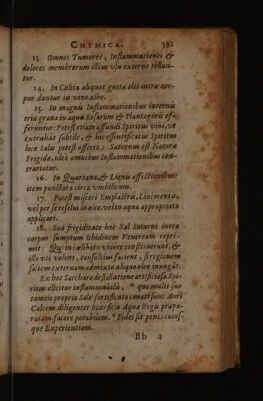 CHYMICA. 391
13. Omnes Tumores, Inflammationes &
dolores membrorum istius usu externo tollun-
tur.
14. In Colica aliquot guttæ olei intra cor-
pus dantur in vino albo.
15. In magnis Inflammationibus internis
tria grana in aqua Rosarum & Plantaginis of-
feruntur: Potest etiam affundi Spiritus vini, ut
extrahat subtile, & hic essentificatus Spiritus
loco Salu potest offerri: Saturnum est Naturæ
Frigidæ, ideò omnibus Inflammationibus con-
trariatur.
16. In Quartana, & Lienis affectionibus:
item punctura circa umbelicum.
17. Potest misceri Emplastris, Linimentis,
vel per se resolui in oleo, vel in aqua appropriata
applicari.
18. Sua frigiditate hoc Sal Saturni intra
corpus sumptum libidinem Veneream repri-
mit: Qui in cælibatu vivere constituerunt, &
isto uti volent, consultum facient, si regionem
saltem externam admixto aliquo oleo inungāt.
Ex hoc Saccharo destillatione artificiosa Spi-
ritus elicitur inflammabilis, quo multi suo
tamen proprio Sale fortificato conati sunt Auri
Calcem diligenter beneficio Aquæ Regiæ præpa-
ratam facere potabilem. * Fides sit penes cuius-
que Experientiam.
Bb 4